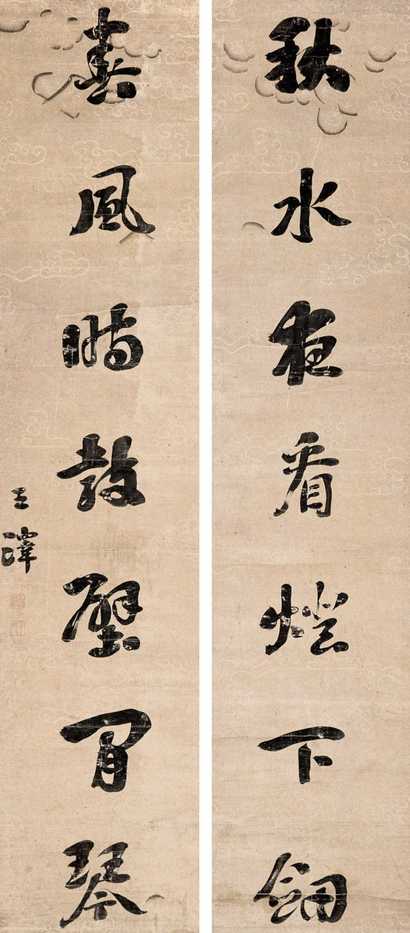 秋水夜看燈下劍
春風時鼓壁間琴
王澤